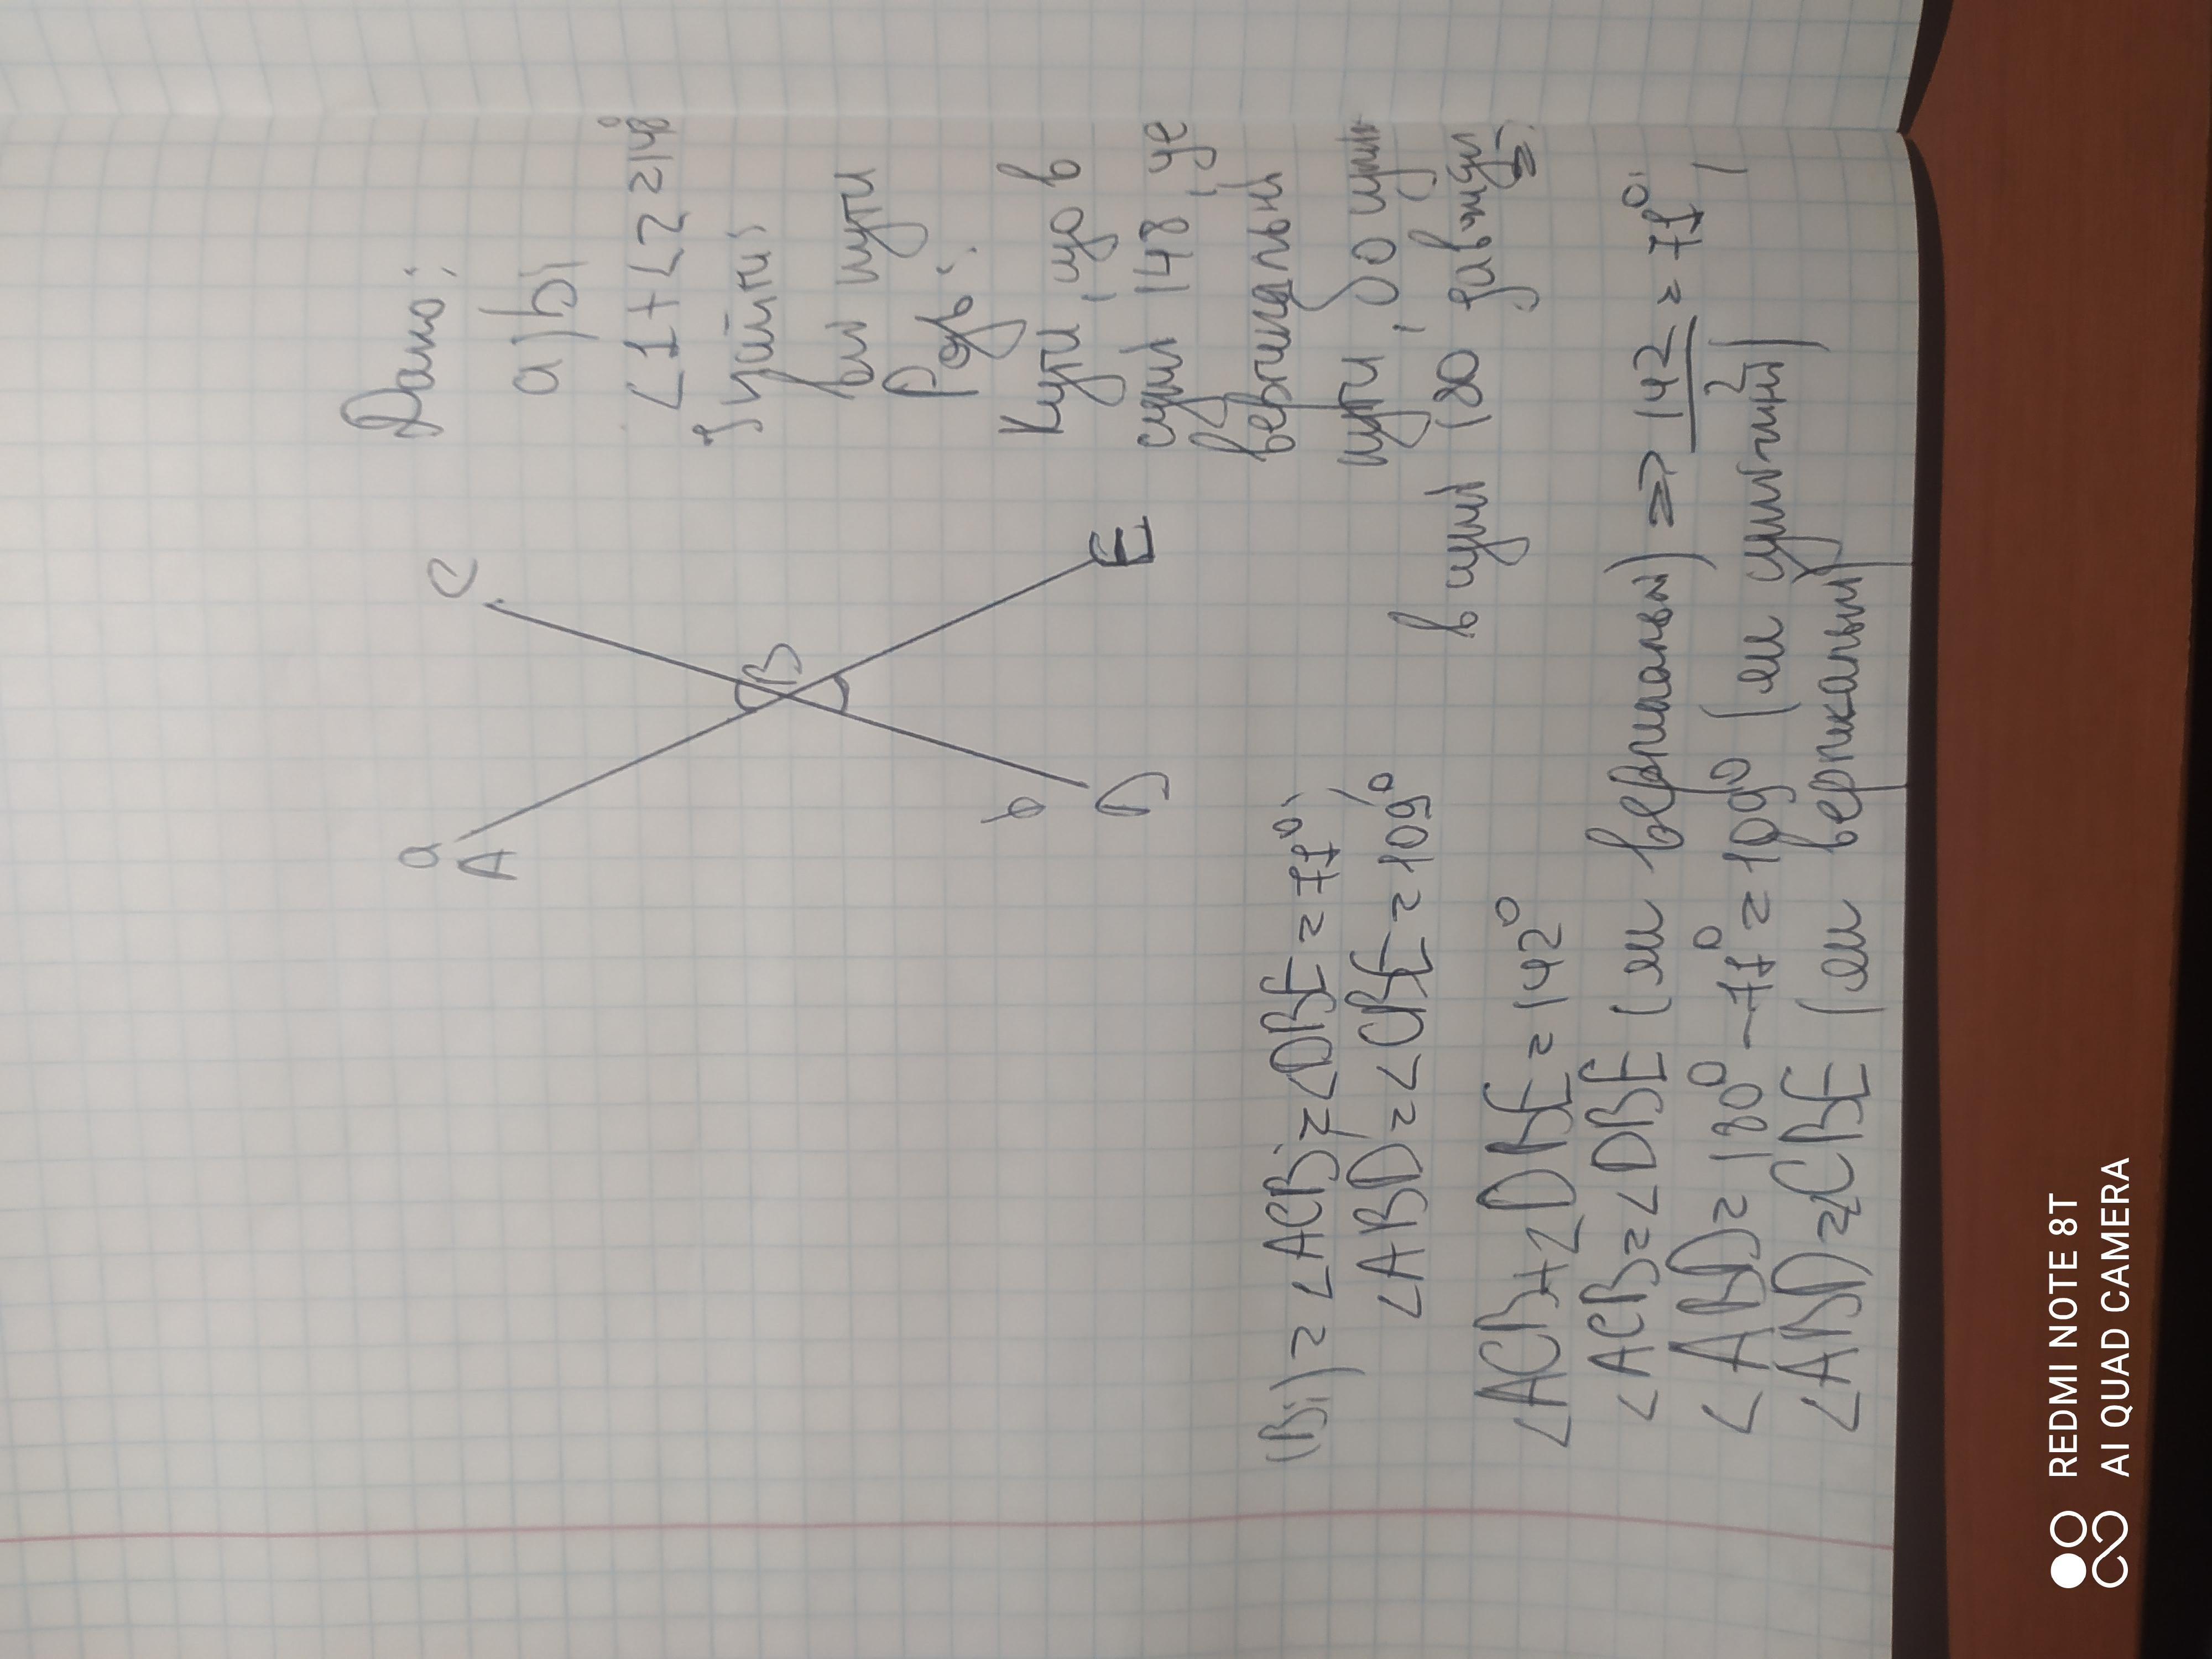 Дано:
a) b)
<1+<2=148°
Знайти:
всі кути
Розв:
Кути, що в
сумі 148, це
вертикальні
кути, бо сум
в сумі 180 завжди
a
A
C
B
E
b
D
(Bi) = <ACB;=<DBE=71°;
<ABD=<CBE=109°
<ACB+<DBE=142°
<ACB=<DBE (як вертикальні) => 142/2 = 71°;
<ABD=180°-71°=109° (як суміжні)
<ABD=<CBE (як вертикальні)
REDMI NOTE 8T
AI QUAD CAMERA